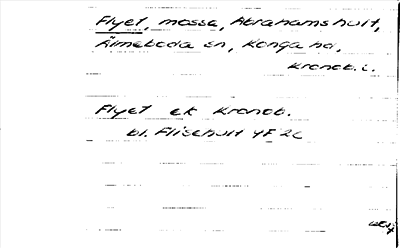 Flyet, mosse, Abrahamshult,
Älmeboda sn, Konga hd,
Kronob. l.
Flyet ek Kronob.
bl. Flisehult 4F 2c